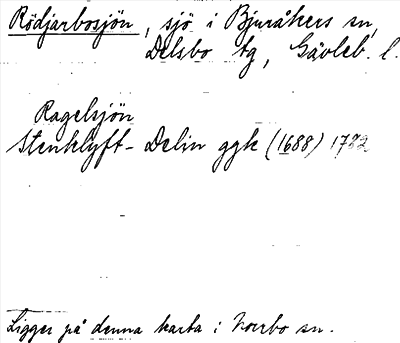 Rödjarbosjön, sjö i Bjuråkers sn,
Delsbo tg, Gävleb. l.
Ragelsjön
Stenklyft-Delin ggk (1688) 1782
Ligger på denna karta i Norrbo sn.